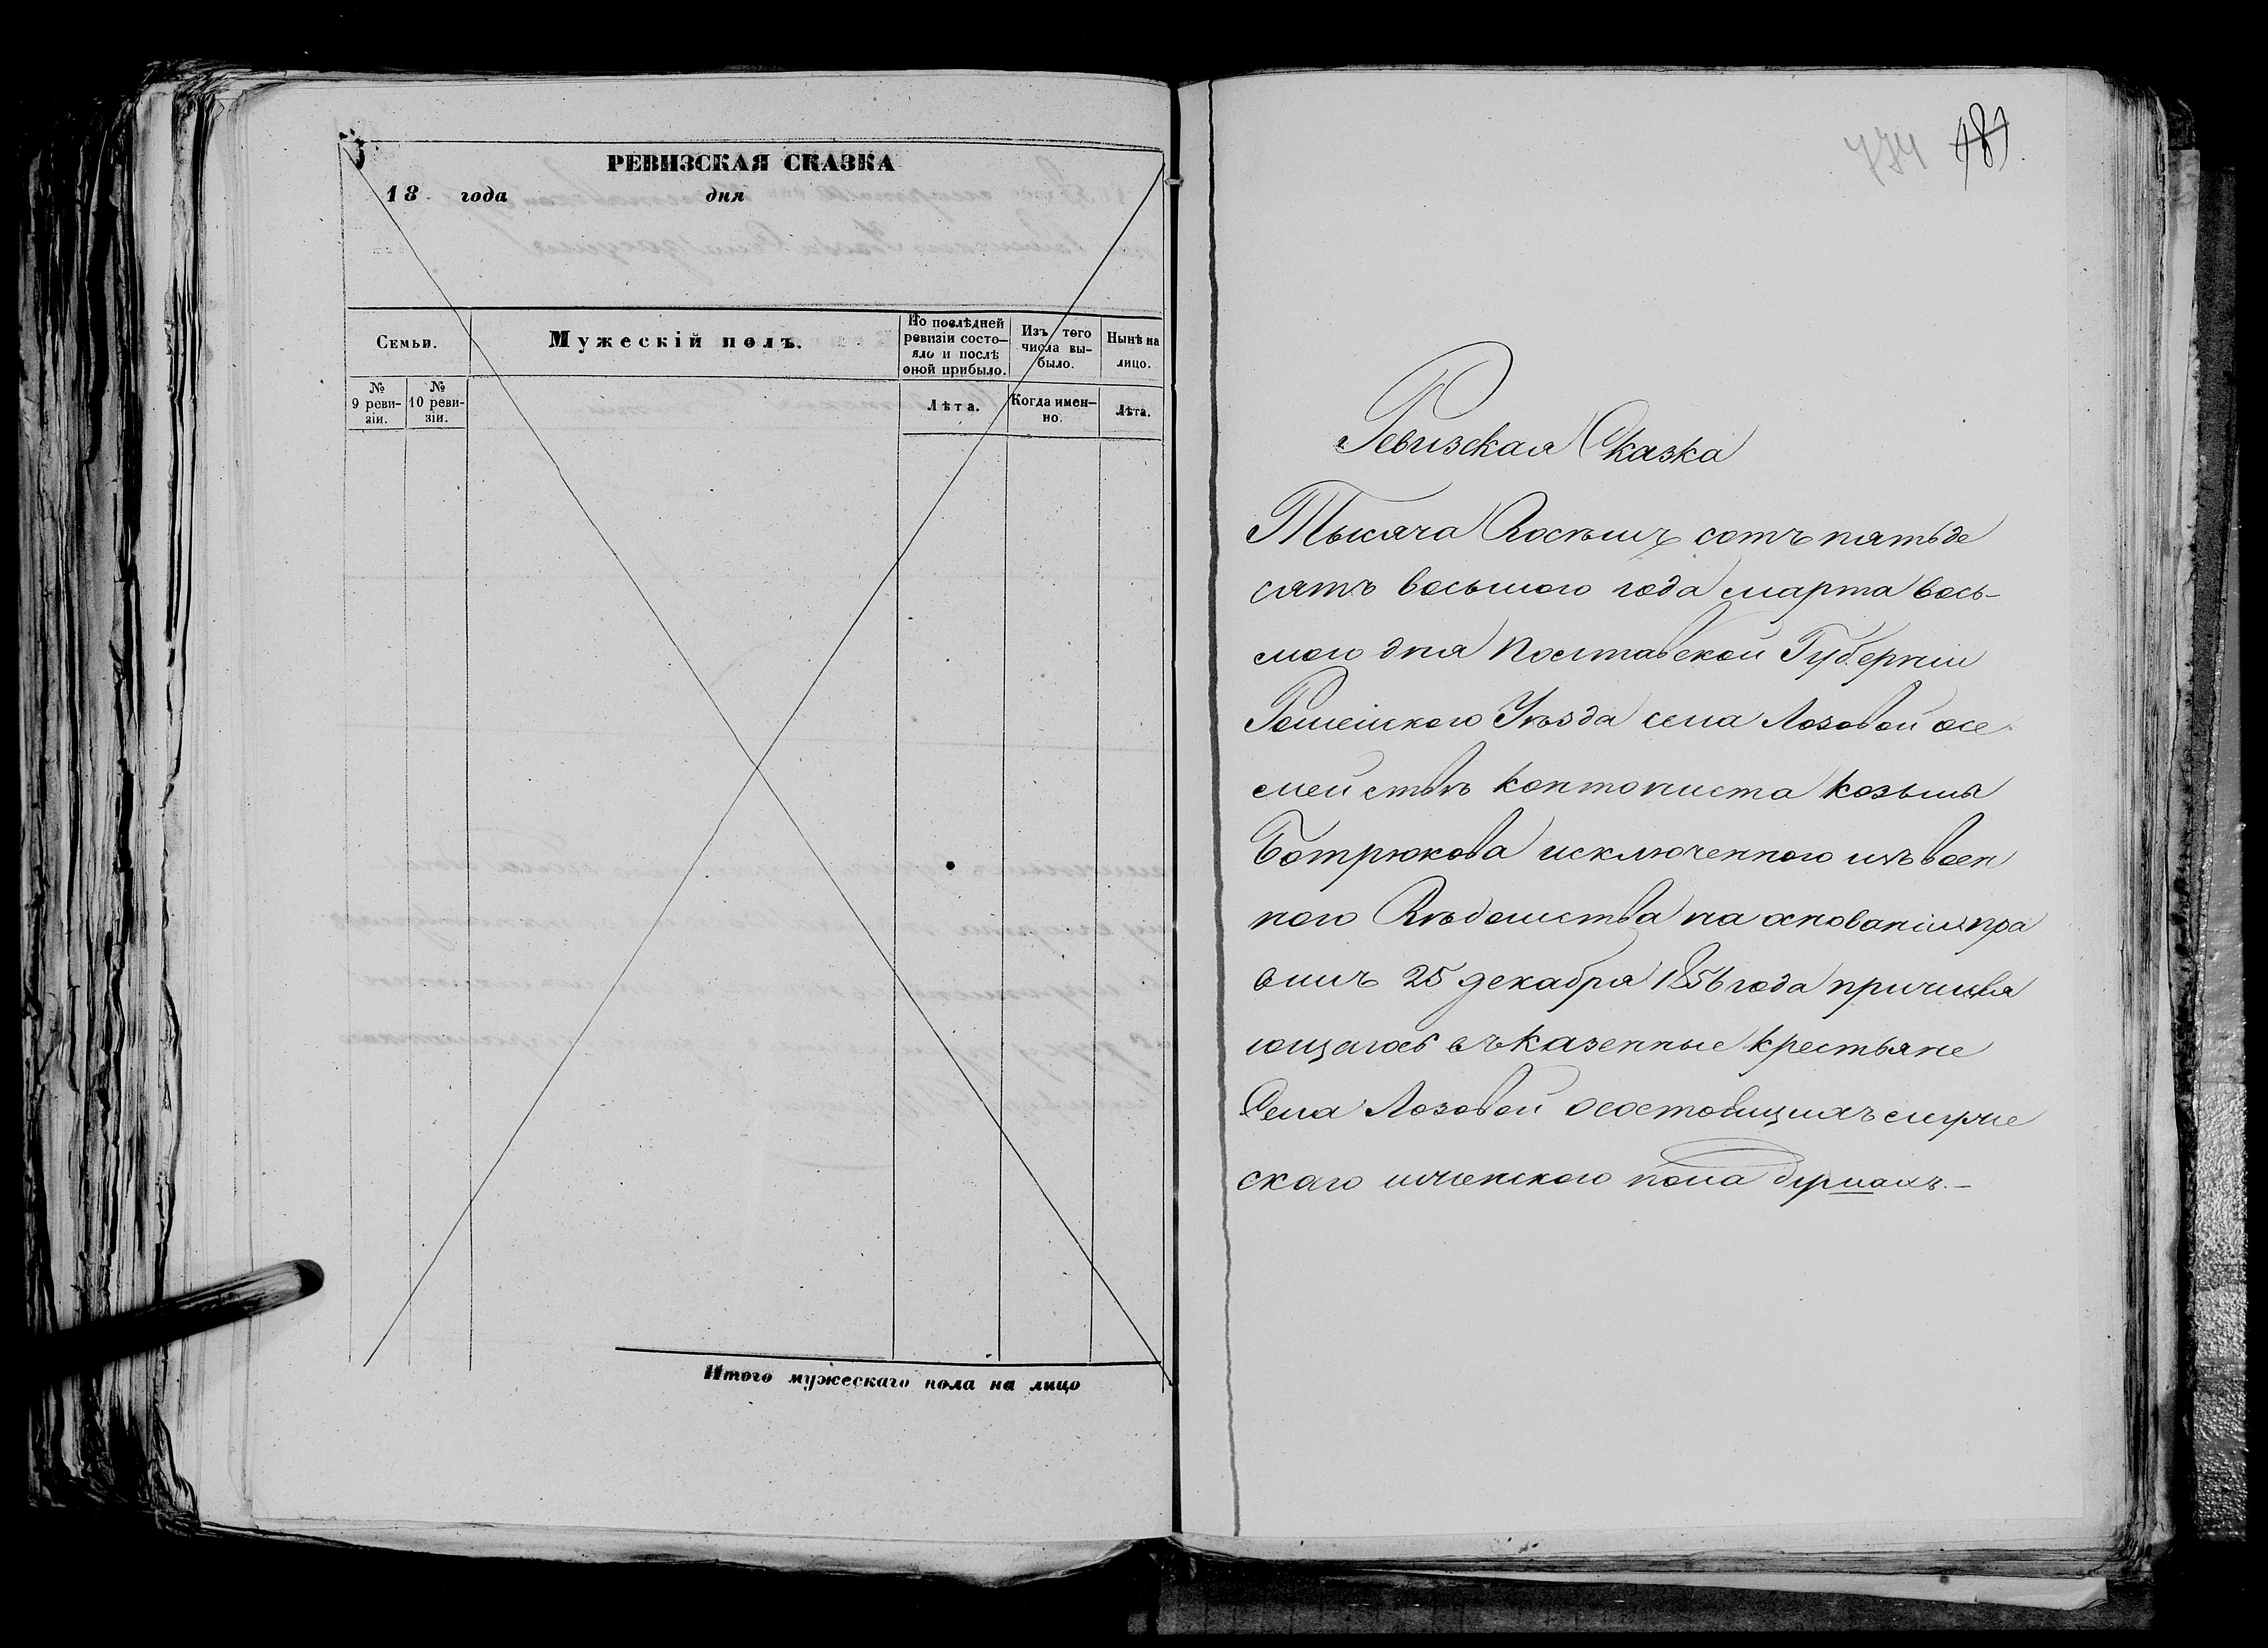 РЕВИЗСКАЯ СКАЗКА
18 года дня
Семьи.
Мужескій полъ.
По послѣдней ревизіи состо-
яло и послѣ
оной прибыло.
Изъ того
числа вы-
было.
Нынѣ на
лицо.
№
9 реви-
зіи.
№
10 реви-
зіи.
Лѣта.
Когда имен-
но.
Лѣта.
Итого мужескаго пола на лицо
774 481
Ревизская Сказка
Тысяча Восѣмъ сотъ пятьде
сятъ восьмого года марта вось-
мого дня Полтавской Губерніи
Роменского Уѣзда села Лозовой осе
мействѣ контониста козьмы
Ботрюкова исключенного изъ воен
ного Вѣдомства на основаніи пра
вилъ 25 декабря 1856 года причисля
ющагося въ казенные крестьяне
Села Лозовой осостовщихъ муже
скаго иженского пола душахъ.-